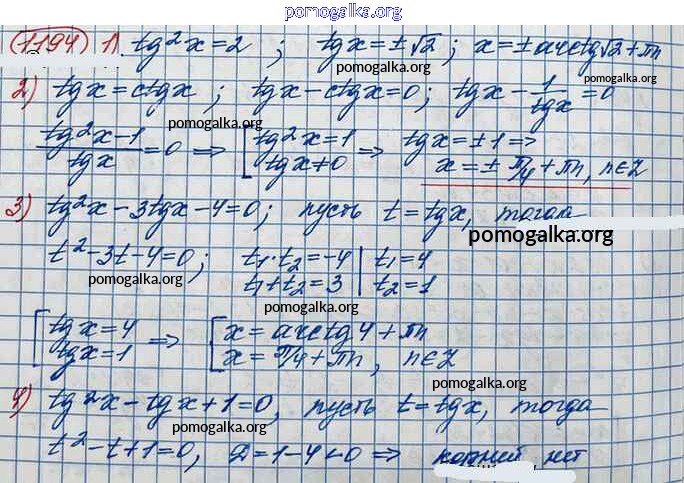 pomogalka.org
(1194) 1). tg²x=2 ; tgx=±√2 ; x=±arctg√2+πn
pomogalka.org
2) tgx=ctgx ; tgx-ctgx=0 ; tgx-1/tgx=0
pomogalka.org
tg²x-1/tgx=0 => [tg²x=1 tgx≠0 => tgx=±1 => x=±π/4+πn, n∈Z
3) tg²x-3tgx-4=0; пусть t=tgx, тогда
pomogalka.org
t²-3t-4=0; t₁·t₂=-4 | t₁=4
pomogalka.org t₁+t₂=3 | t₂=1
pomogalka.org
[tgx=4 => [x=arctg4+πn
tgx=1 x=π/4+πn, n∈Z
pomogalka.org
4) tg²x-tgx+1=0, пусть t=tgx, тогда
pomogalka.org
t²-t+1=0, D=1-4<0 => корней нет